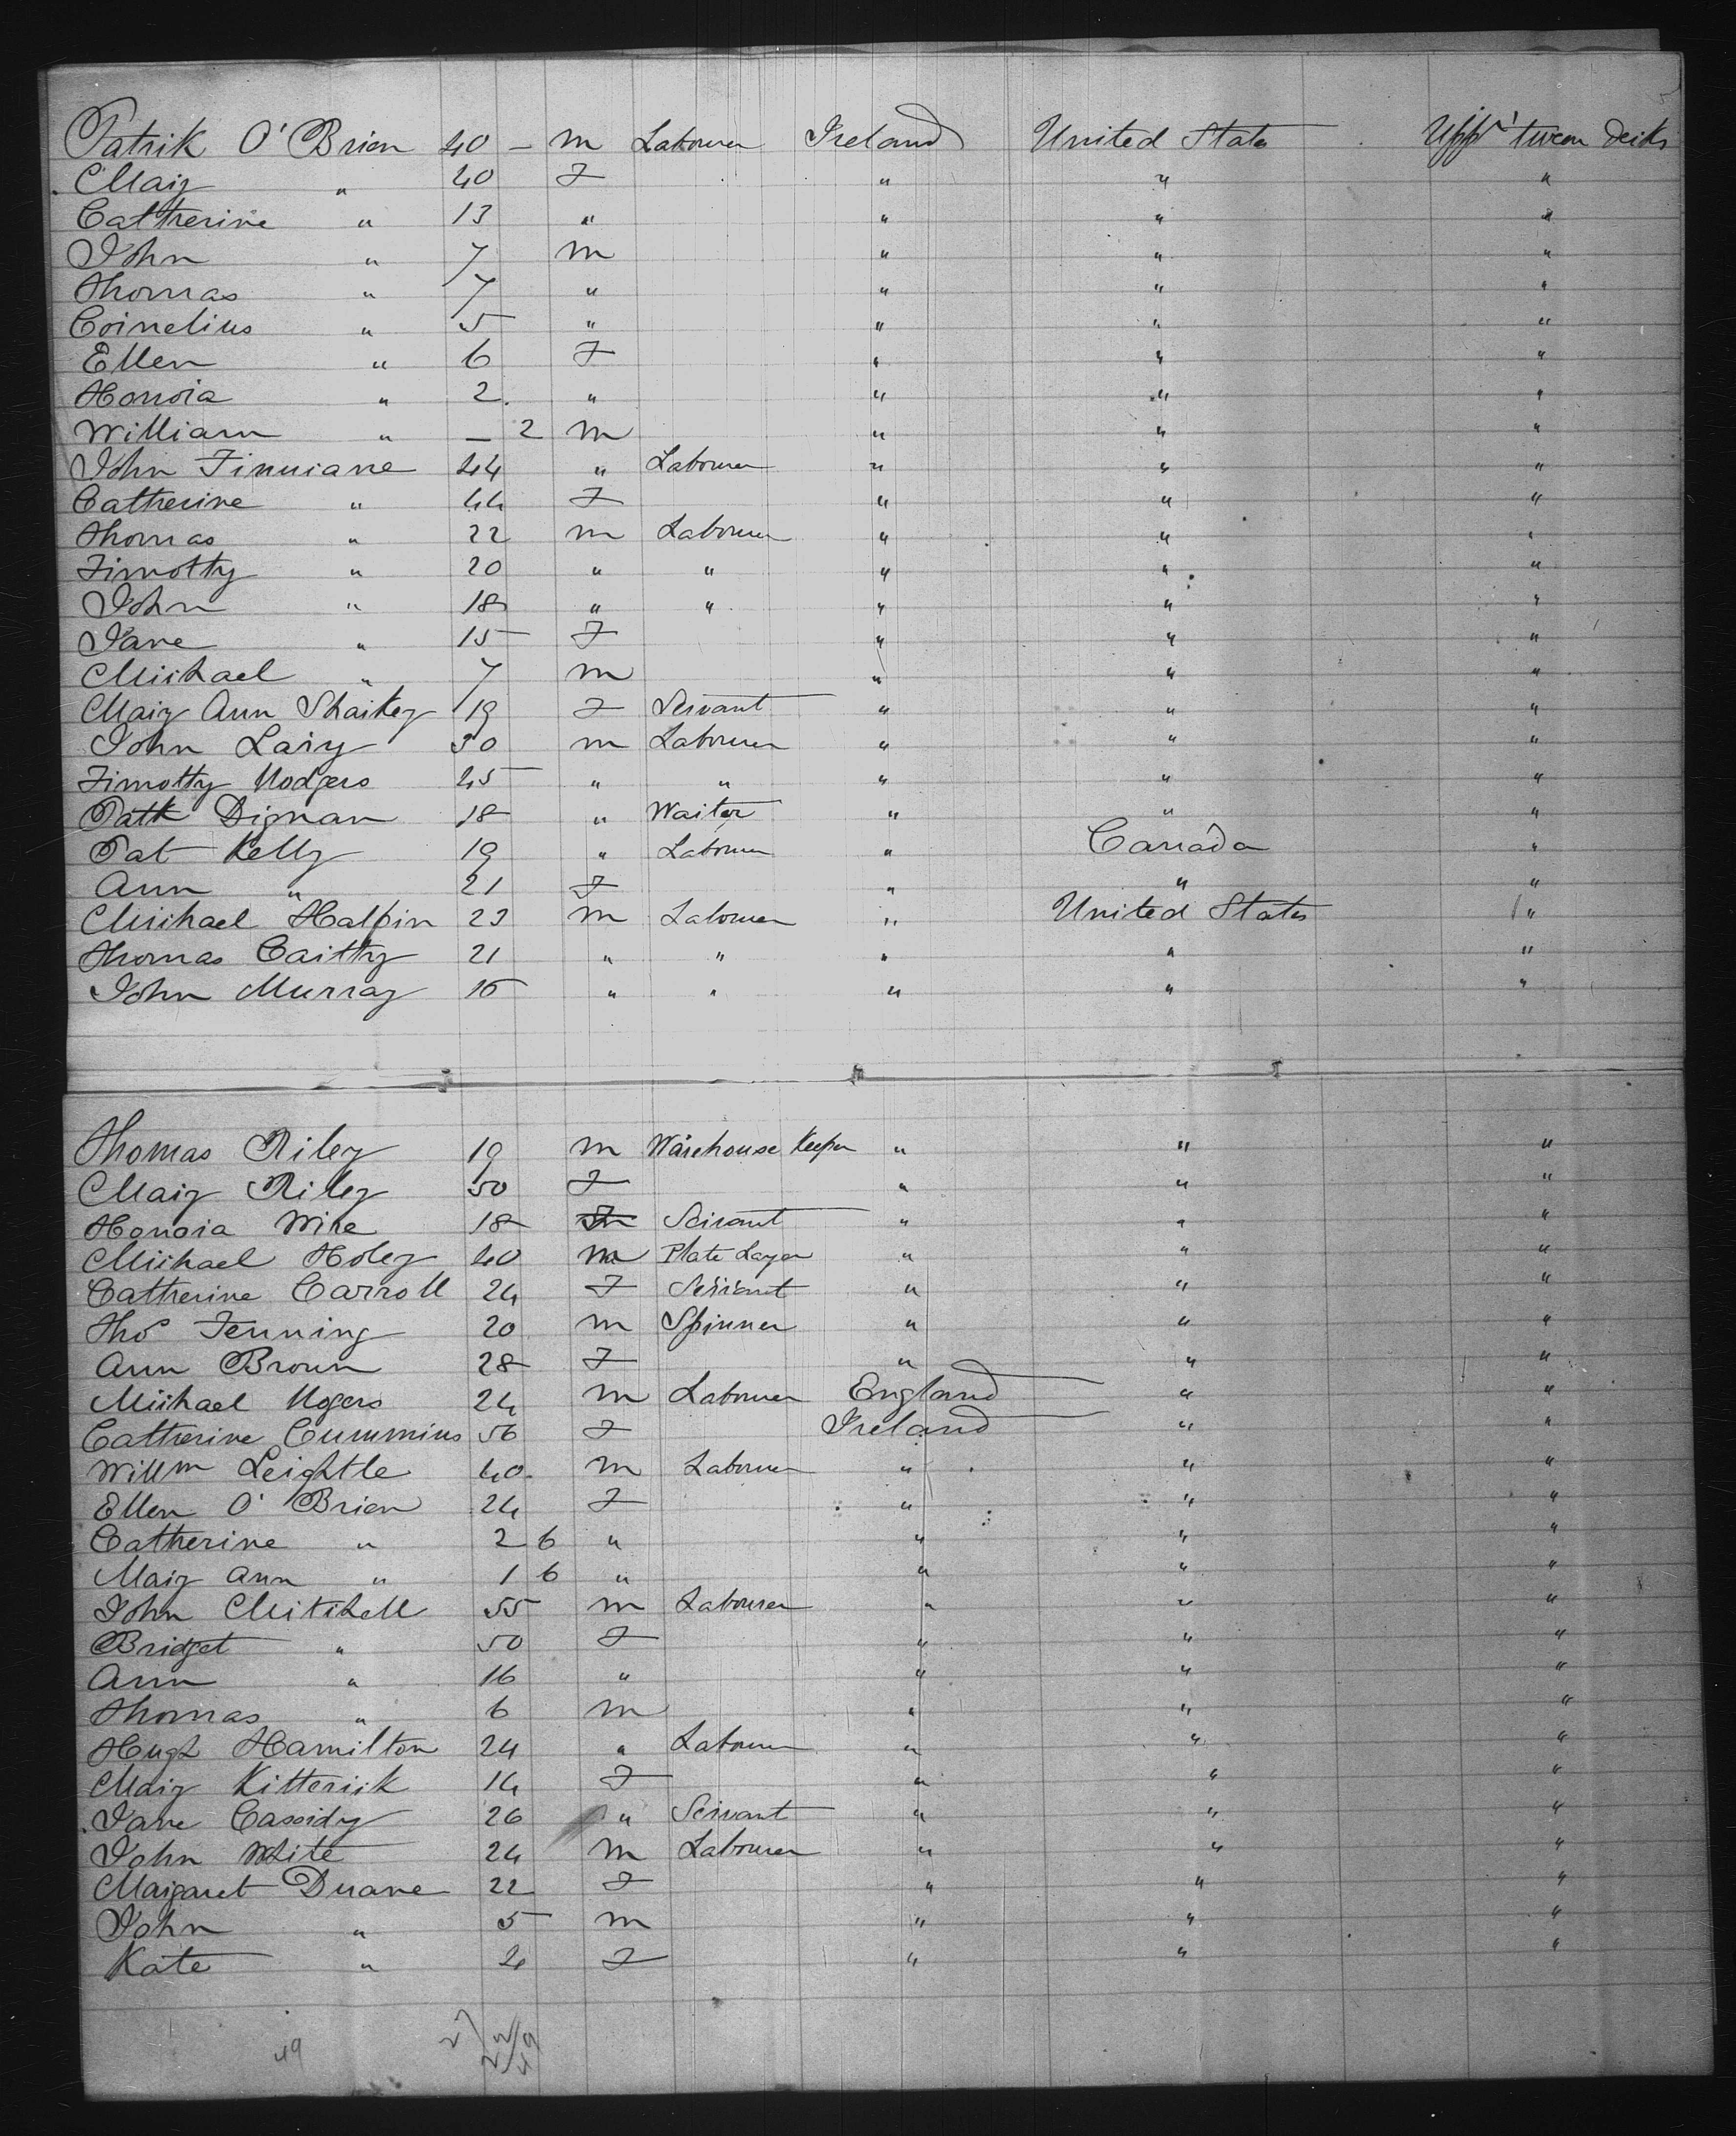 Patrik O'Brien 40 – m Labourer Ireland United States Uppr 'tween decks
Mary " 40 F " " "
Catherine " 13 " " " "
John " 7 m " " "
Thomas " 7 " " " "
Cornelius " 5 " " " "
Ellen " 6 F " " "
Honora " 2 " " " "
William " – 2 m " " "
John Finnane 44 " Labourer " " "
Catherine " 44 F " " "
Thomas " 22 m Labourer " " "
Timothy " 20 " " " " "
John " 18 " " " " "
Jane " 15 F " " "
Michael " 7 m " " "
Mary Ann Sharkey 19 F Servant " " "
John Lary 50 m Labourer " " "
Timothy Rodgers 45 " " " " "
Patk Dignan 18 " Waiter " " "
Pat Kelly 19 " Labourer " Canada "
Ann " 21 F " " "
Michael Halpin 23 m Labourer " United States "
Thomas Carthy 21 " " " " "
John Murray 16 " " " " "
Thomas Riley 19 m Warehouse Keeper " " "
Mary Riley 50 F " " "
Honora Wire 18 F Servant " " "
Michael Holey 40 m Plate Layer " " "
Catherine Carroll 24 F Servant " " "
Thos Jenning 20 m Spinner " " "
Ann Brown 28 F " " "
Michael Rogers 24 m Labourer England " "
Catherine Cummins 56 F Ireland " "
Willm Leightle 40 m Labourer " " "
Ellen O'Brien 24 F " " "
Catherine " 2 6 " " " "
Mary Ann " 1 6 " " " "
John Mitchell 55 m Labourer " " "
Bridget " 50 F " " "
Ann " 16 " " " "
Thomas " 6 m " " "
Hugh Hamilton 24 " Labourer " " "
Mary Kitterick 14 F " " "
Jane Cassidy 26 " Servant " " "
John White 24 m Labourer " " "
Margaret Duane 22 F " " "
John " 5 m " " "
Kate " 2 F " " "
49